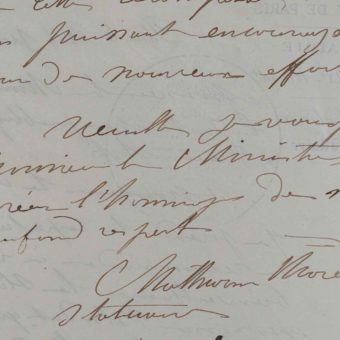 puissant encourage
de nouveaux effor
Veuill je vous
onsieur le Ministre
réer l'hommage de
ofond respect
Mathurin More
statuaire